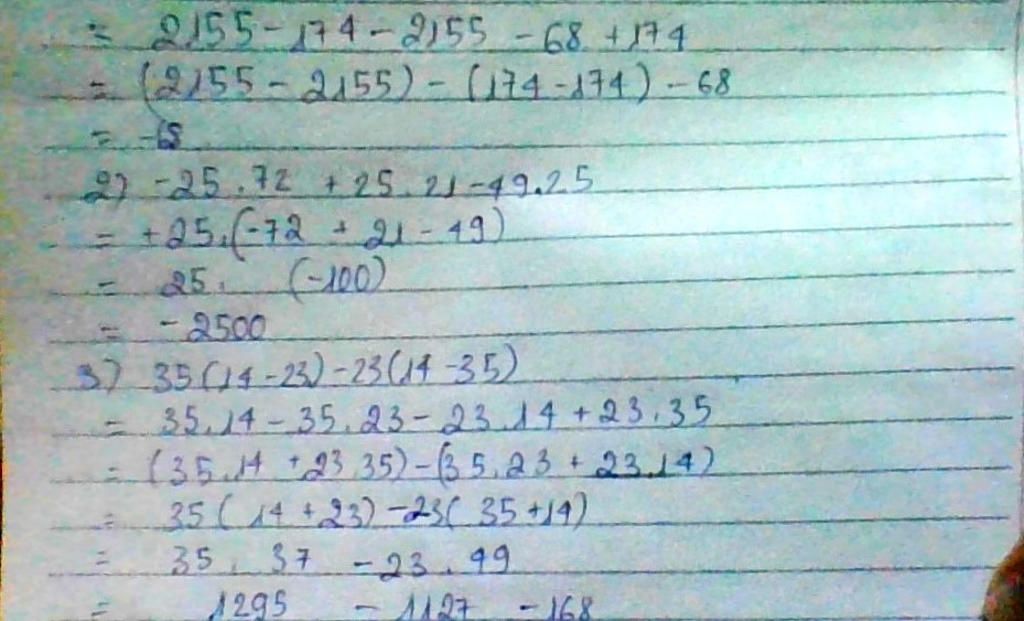 = 2155 - 174 - 2155 - 68 + 174
= (2155 - 2155) - (174 - 174) - 68
= -68
2) -25.72 + 25.21 - 49.25
= +25.(-72 + 21 - 49)
= 25. (-100)
= -2500
3) 35(14 - 23) - 23(14 - 35)
= 35.14 - 35.23 - 23.14 + 23.35
= (35.14 + 23 35) - (35.23 + 23.14)
= 35( 14 + 23) - 23( 35 + 14)
= 35. 37 - 23.49
= 1295 - 1127 - 168